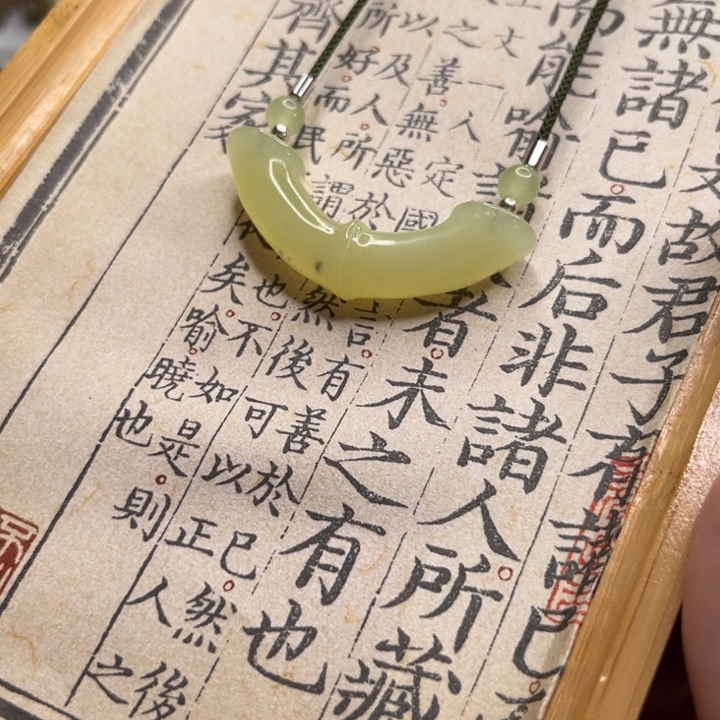 故君子有諸己
無諸己而后非諸人所藏
而能喻諸者未之有也
上文一人定國言有善於己然後
之善無惡於然後可以正人之
以及人所謂也不如是則
所好而民矣喻曉也
齊其家